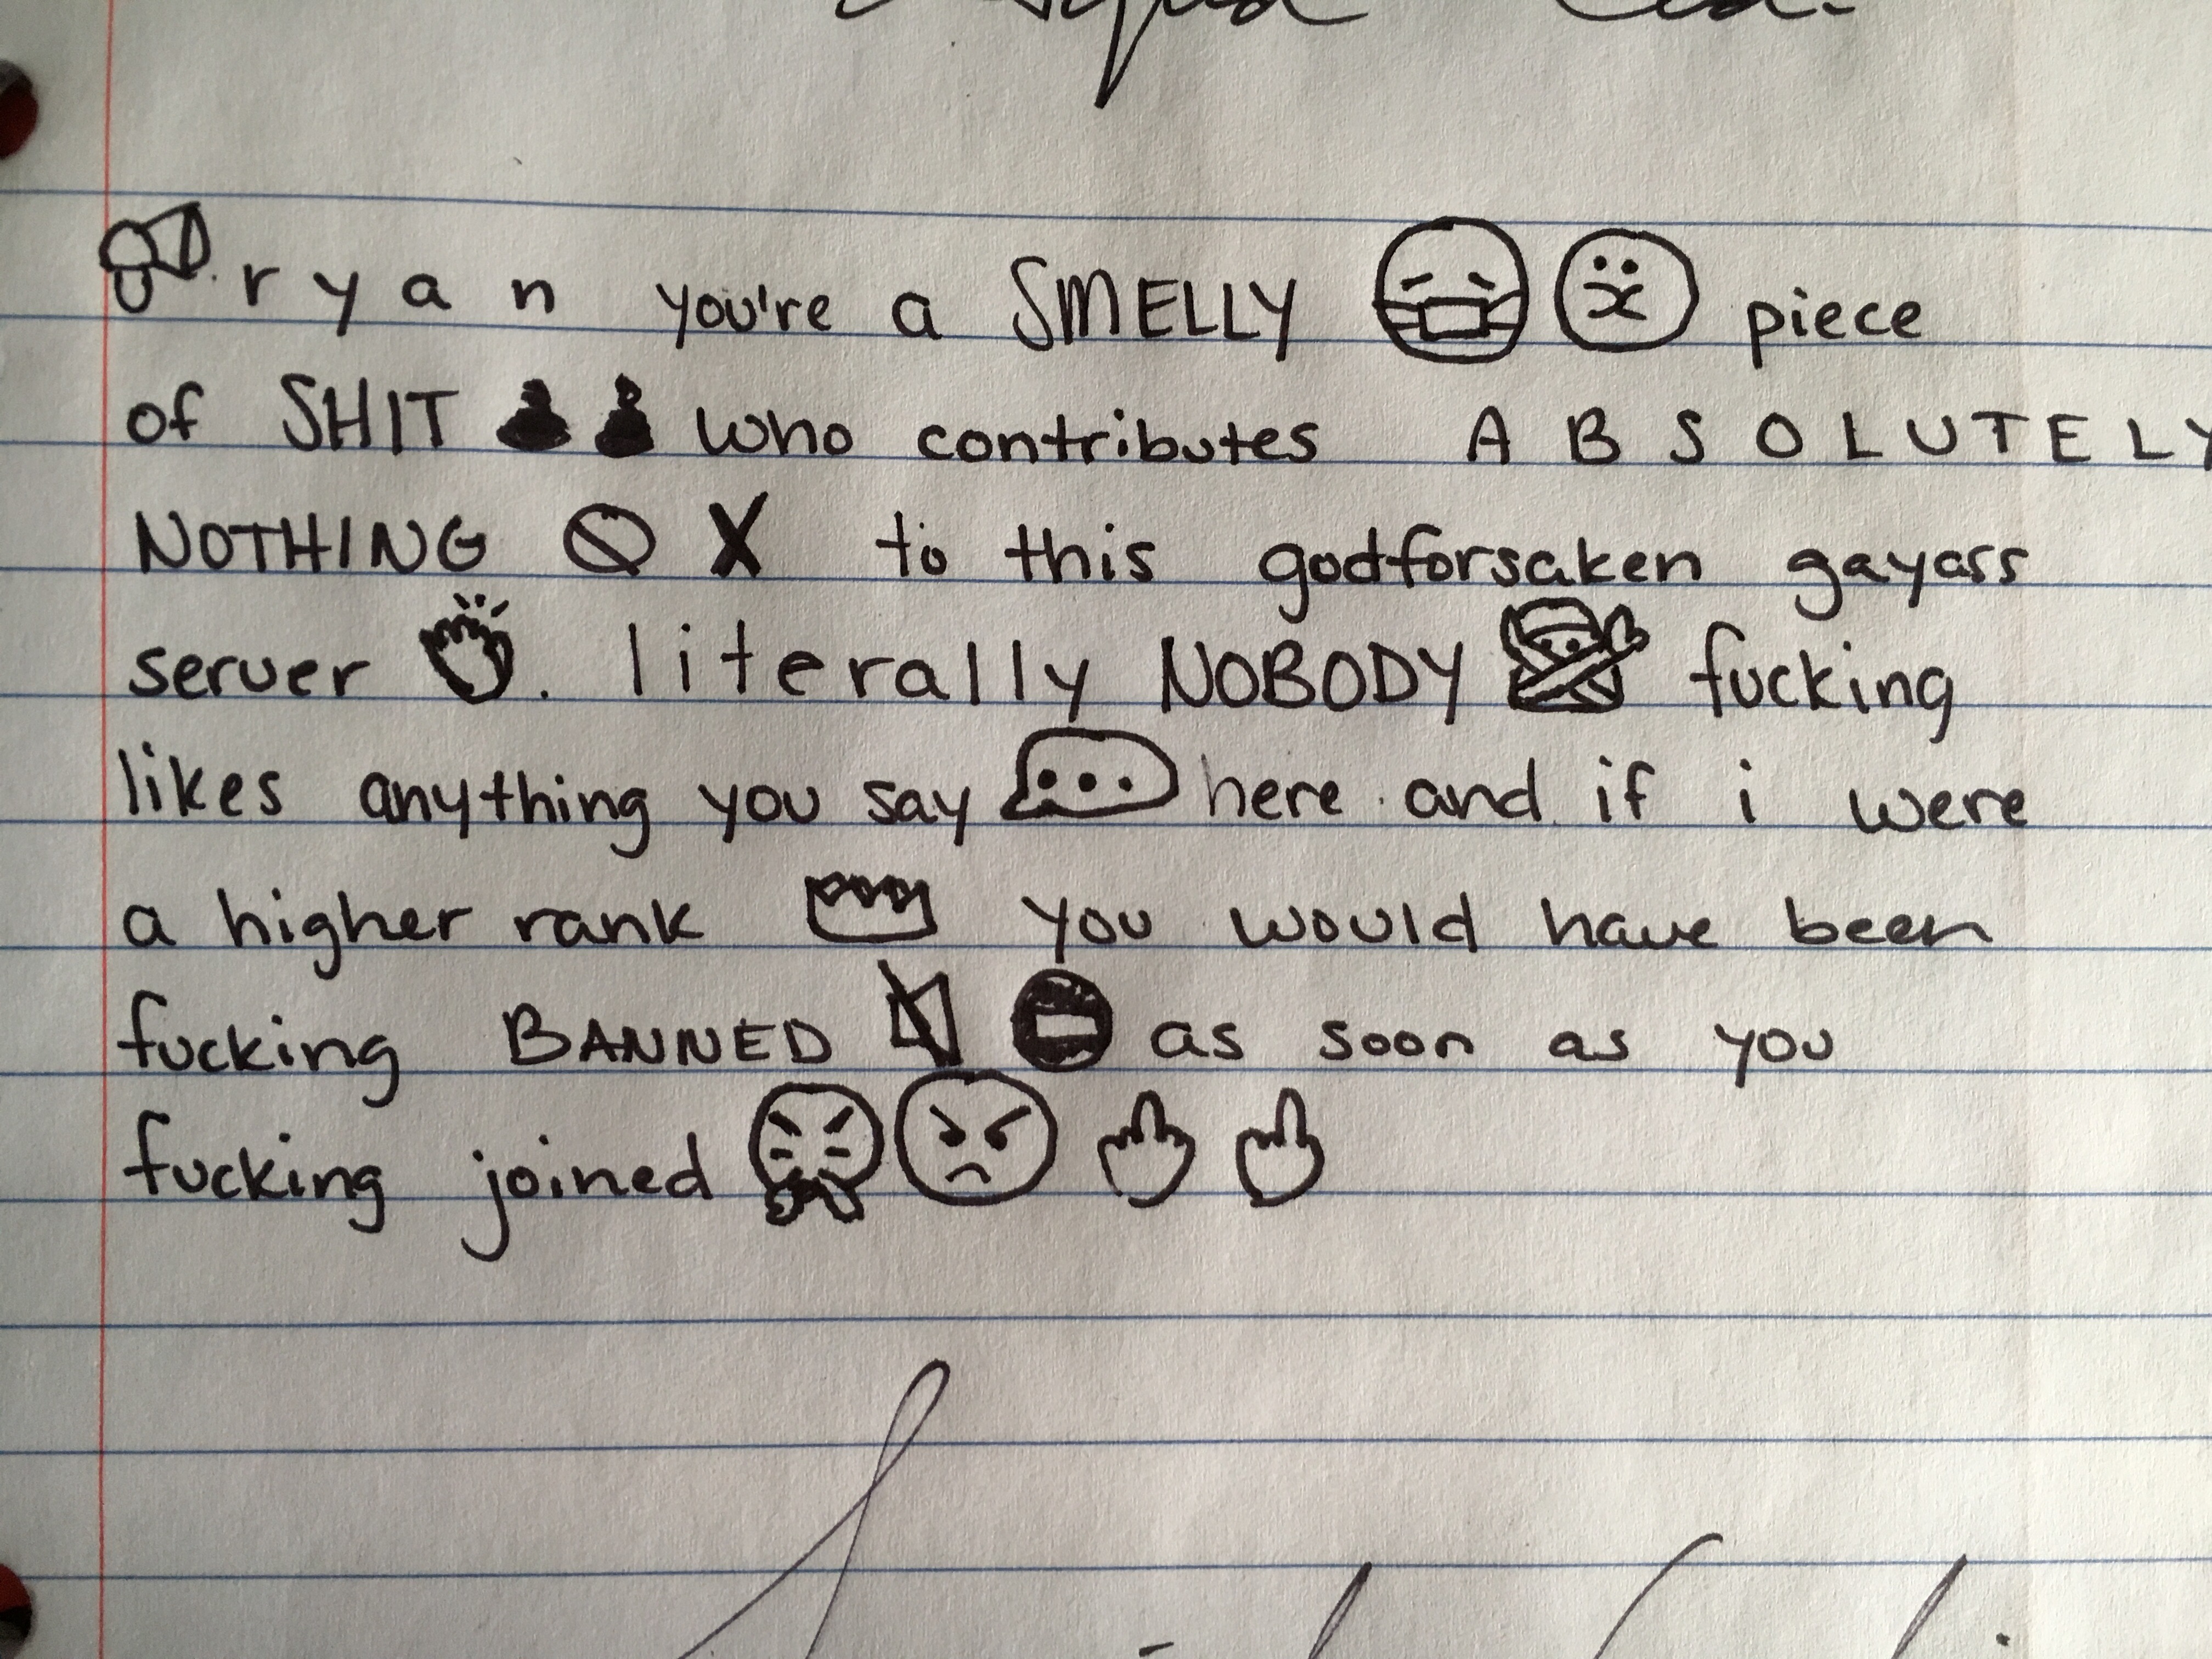 ryan you're a SMELLY piece
of SHIT who contributes ABSOLUTELY
NOTHING X to this godforsaken gayass
server. literally NOBODY fucking
likes anything you say here and if i were
a higher rank you would have been
fucking BANNED as soon as you
fucking joined